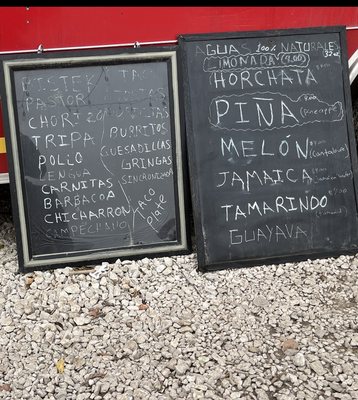 BISTEK
PASTOR
CHORIZO
TRIPA
POLLO
LENGUA
CARNITAS
BARBACOA
CHICHARRON
CAMPECHANO
BURRITOS
QUESADILLAS
GRINGAS
SINCRONIZADA
TACO
PLATE
AGUAS 100% NATURALES
LIMONADA 32 oz
HORCHATA
PIÑA (Pineapple)
MELÓN (Cantaloupe)
JAMAICA
TAMARINDO
GUAYAVA